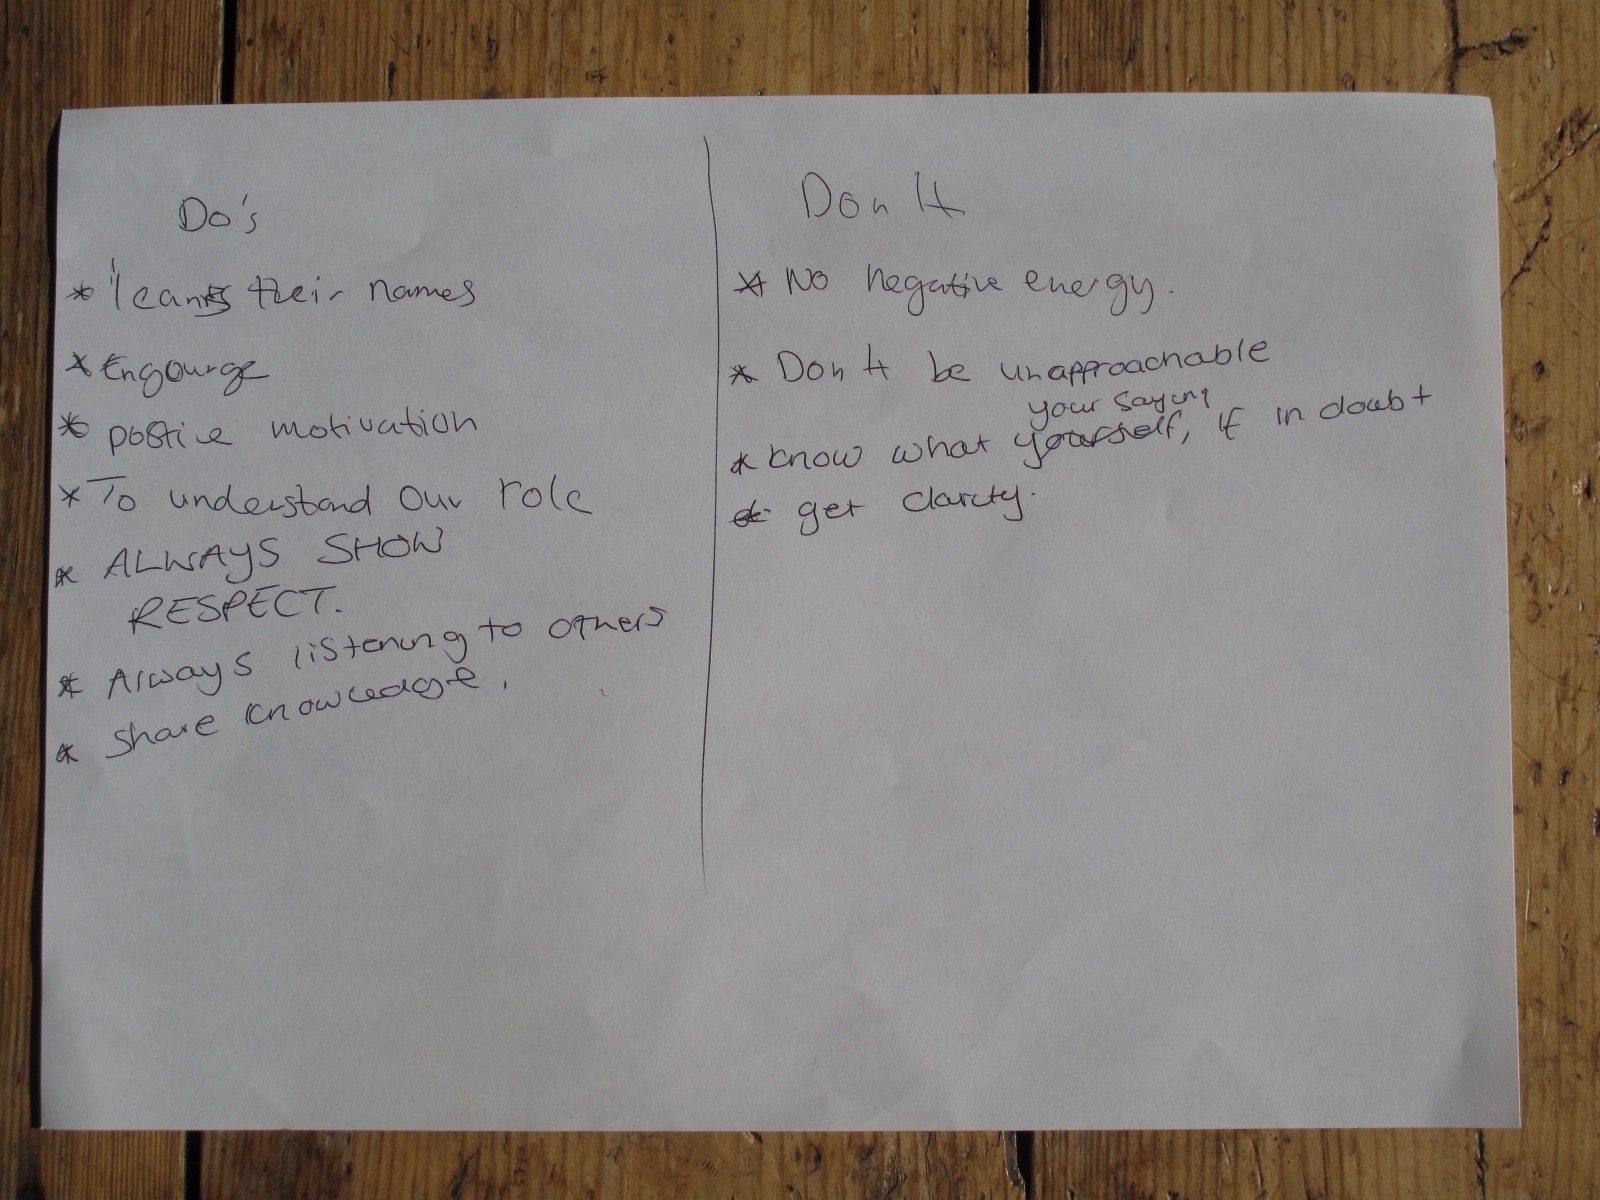 Do's
* learn their names
* Engourge
* postive motivation
* To understand our role
* ALWAYS SHOW
RESPECT.
* Always listening to others
* share knowledge.
Don't
* No negative energy.
* Don't be unapproachable
your saying
* know what yourself, if in doubt
get clarity.